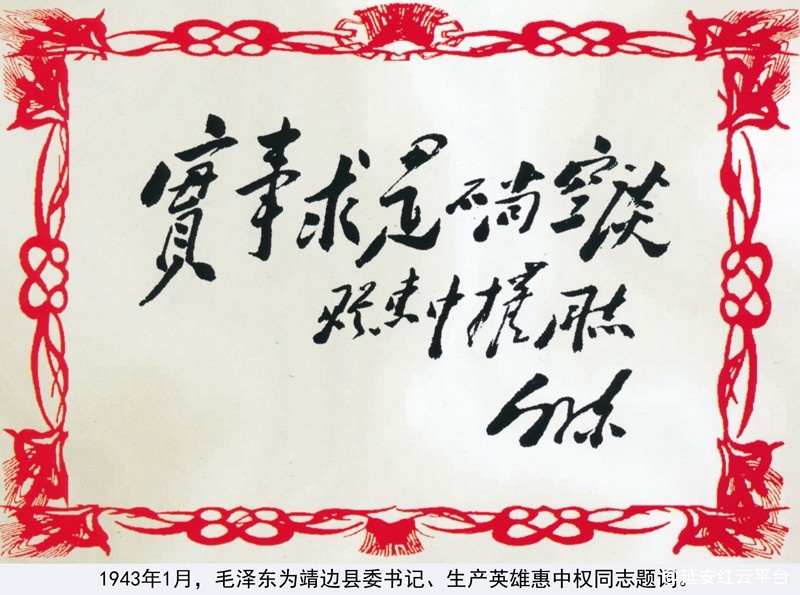 實事求是不尚空談
赠惠中權同志
毛泽东
1943年1月，毛泽东为靖边县委书记、生产英雄惠中权同志题词。
@延安红云平台